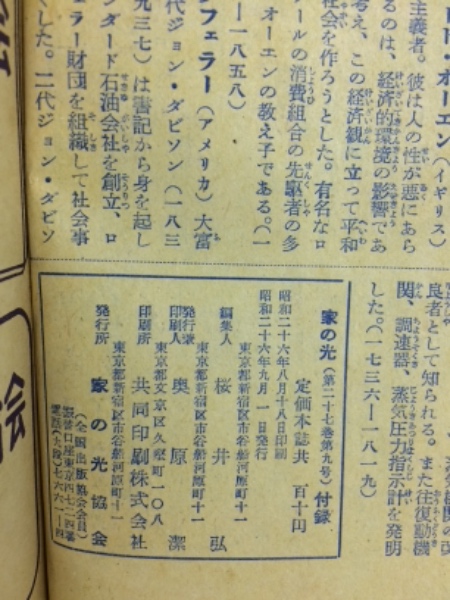 ト・オーエン（イギリス）
主義者。彼は人の性が悪にあら
るのは、経済的環境の影響であ
考え、この経済観に立って平和
社会を作ろうとした。有名なロ
ールの消費組合の先駆者の多
オーエンの教え子である。（一
一八五八）
フェラー（アメリカ）大富
代ジョン・ダビソン（一八三
九三七）は書記から身を起し
ンダード石油会社を創立、ロ
ェラー財団を組織して社会事
くした。二代ジョン・ダビソ
良者として知られる。また往復動機
関、調速器、蒸気圧力指示計を発明
した。（一七三六―一八一九）
家の光（第二十七巻第九号）付録
定価本誌共 百十円
昭和二十六年八月十八日印刷
昭和二十六年九月一日発行
東京都新宿区市谷船河原町十一
編集人 桜井弘
東京都新宿区市谷船河原町十一
発行兼印刷人 奥原潔
東京都文京区久堅町一〇八
印刷所 共同印刷株式会社
東京都新宿区市谷船河原町十一
発行所 家の光協会
（全国出版協会会員）
絵